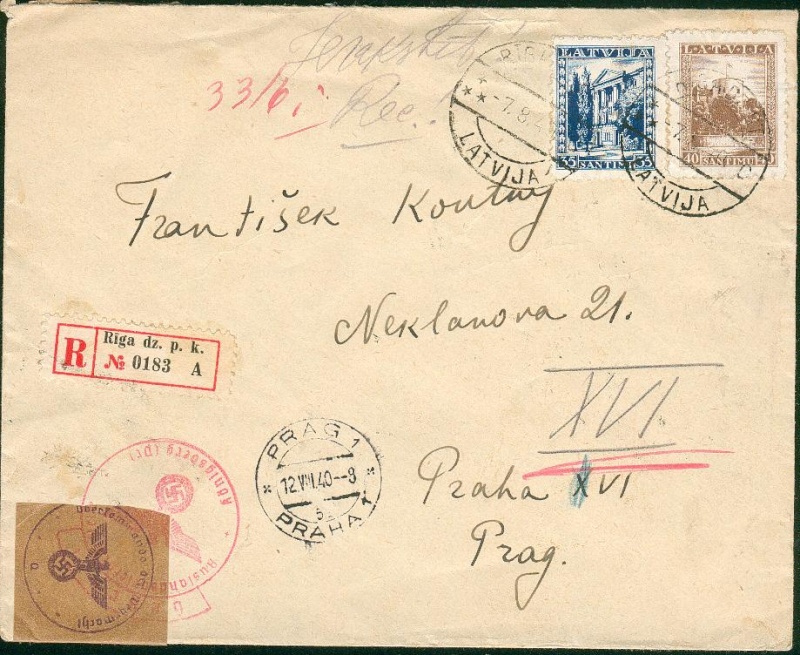 Ierakstīt
Rec.
33/6i
LATVIJA
35 SANTIMU 35
LATVIJA
40 SANTIMU 40
RIGA
-7.8.4
LATVIJA
-7.
LATVIJA
František Koutný
Neklanova 21.
R
Rīga dz. p. k.
№ 0183 A
XVI.
PRAG 1
12.VIII.40-8
PRAHA 1
Praha XVI
Prag.
Königsberg (Pr)
Auslands
Oberkommando der Wehrmacht